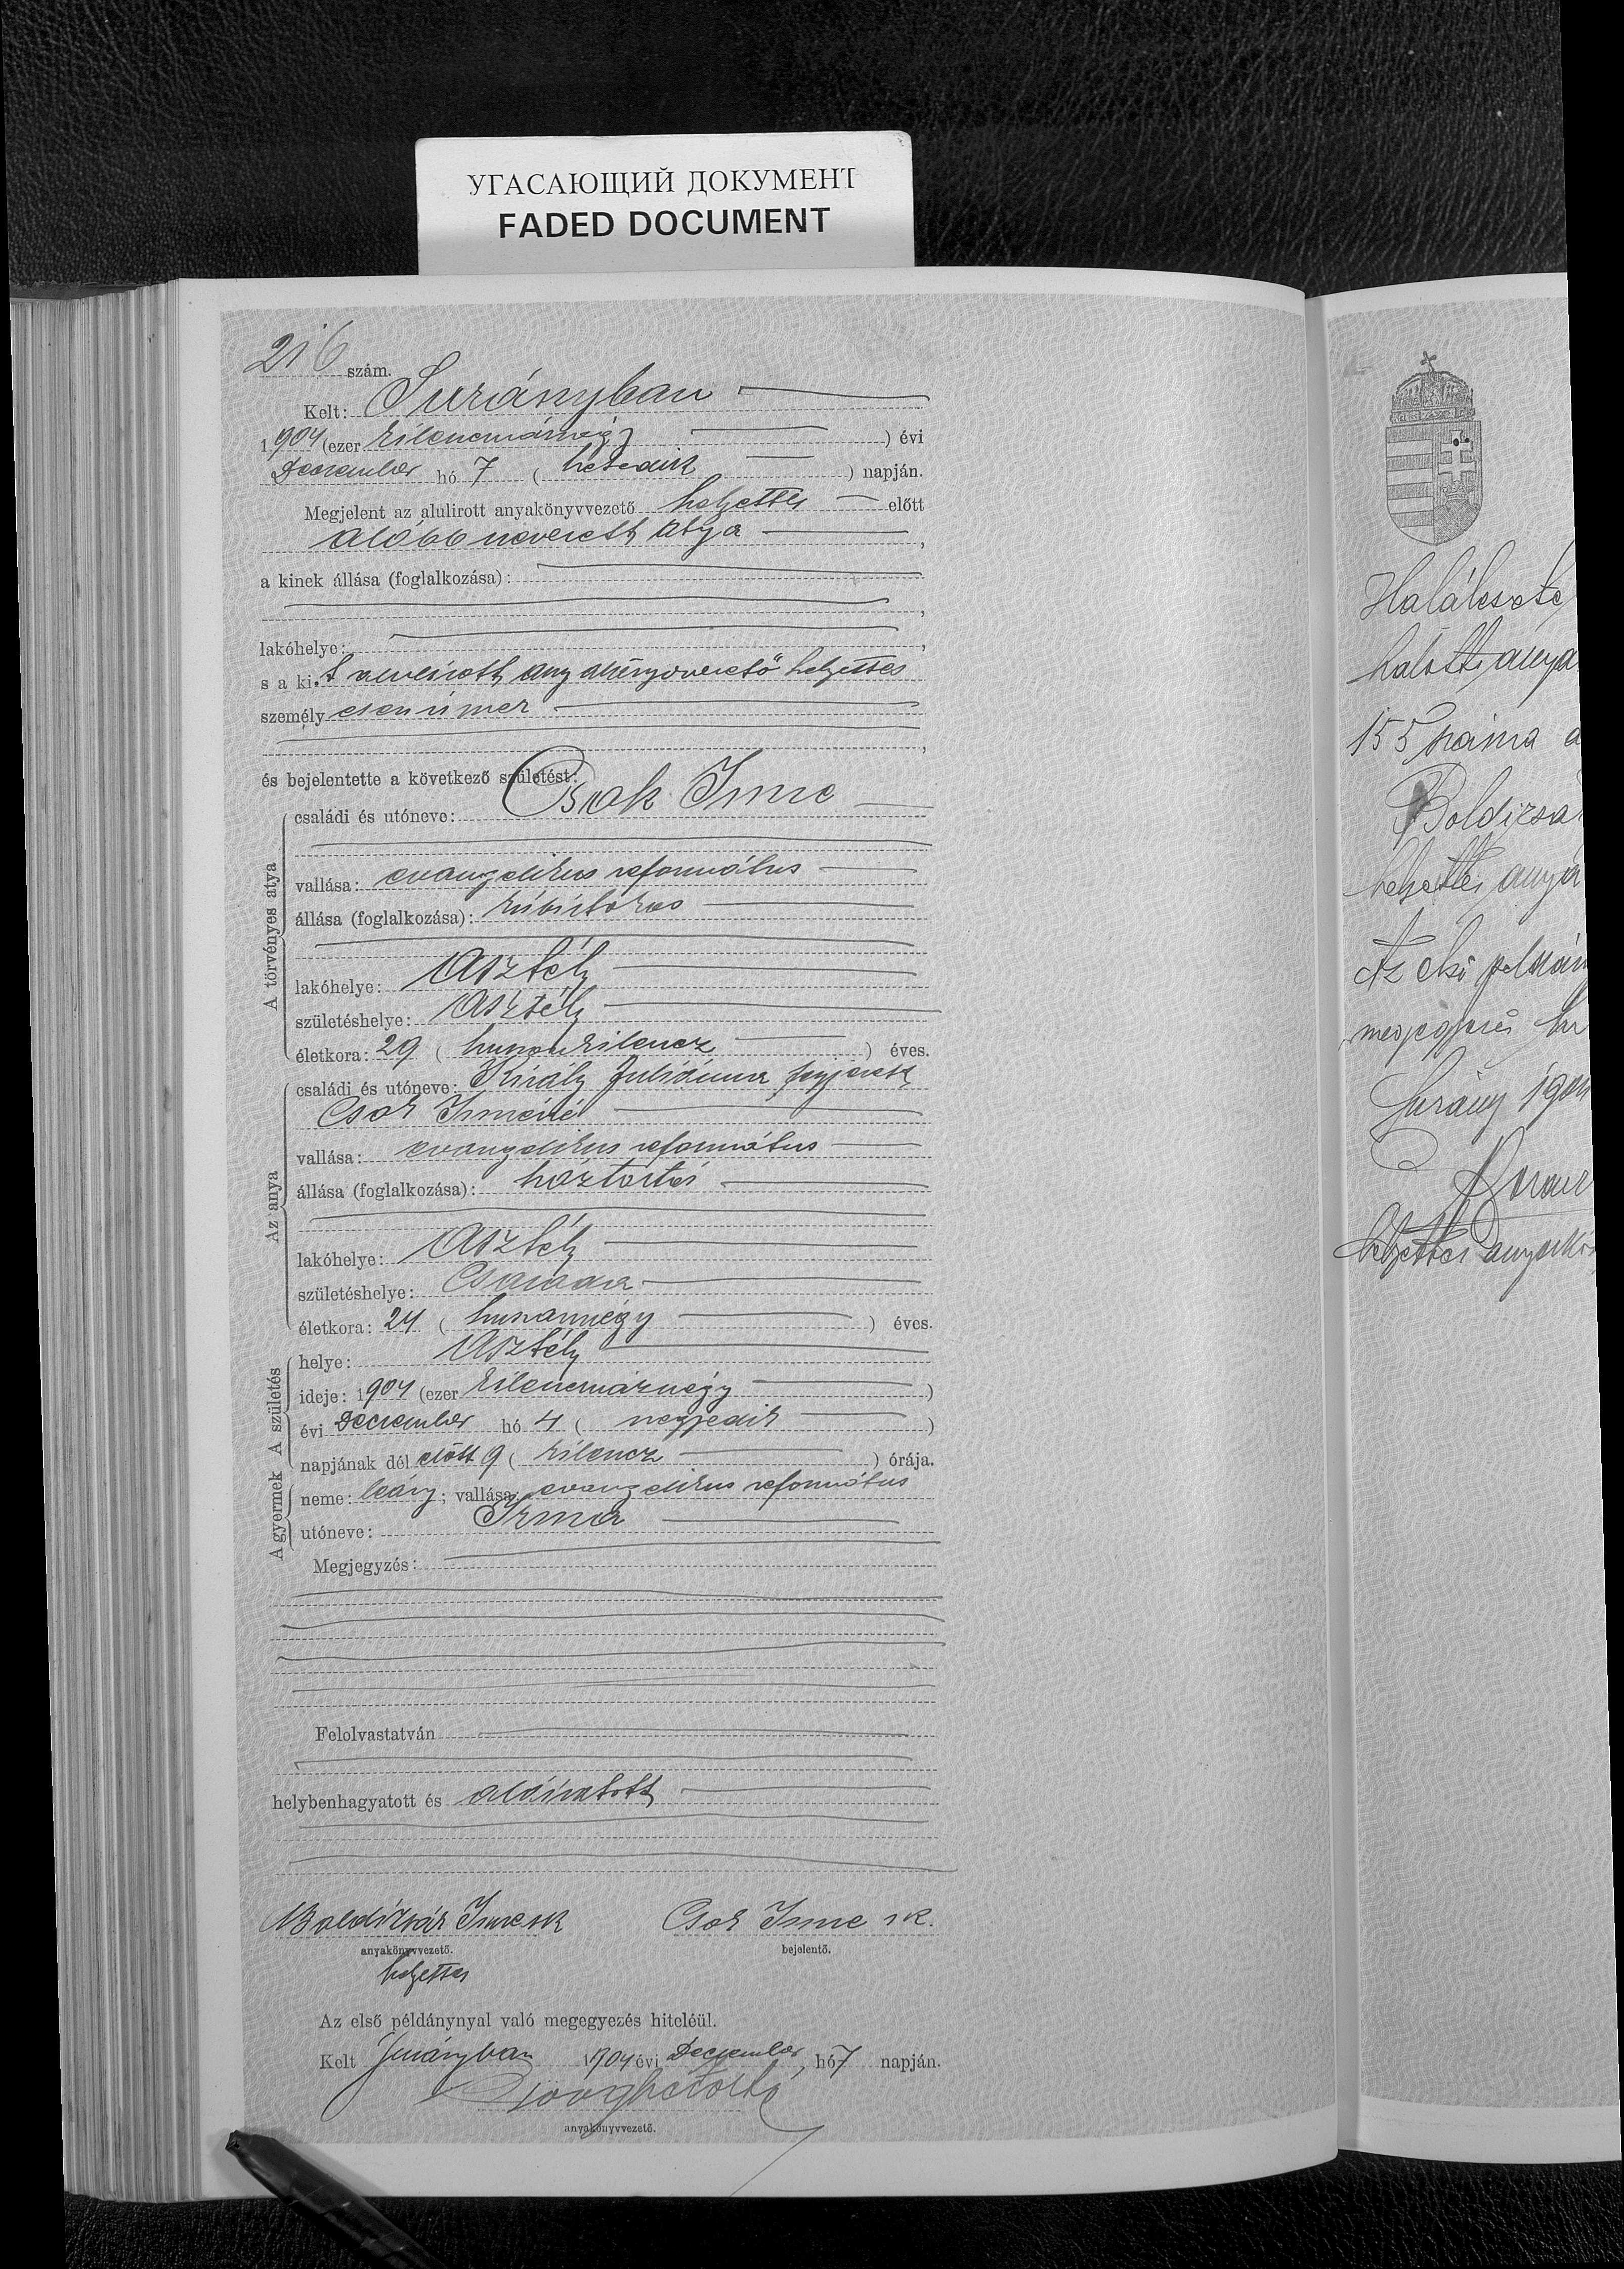 УГАСАЮЩИЙ ДОКУМЕНТ
FADED DOCUMENT
216 szám.
Kelt: Surányban
1904 (ezer kilenczszáznégy) évi
December hó 7 ( hetedik ) napján.
Megjelent az alulirott anyakönyvvezető helyettes előtt
alább nevezett atya ,
a kinek állása (foglalkozása):
,
lakóhelye: ,
s a ki. Az alulirott anyakönyvvezető helyettes
személyesen ismer
,
és bejelentette a következő születést:
A törvényes atya
családi és utóneve: Csok Imre
vallása: evangelikus református
állása (foglalkozása):
lakóhelye: Asztély
születéshelye: Asztély
életkora: 29 ( huszonkilencz ) éves.
Az anya
családi és utóneve: Király Juliánna férjezett
Csok Imréné
vallása: evangelikus református
állása (foglalkozása): háztartás
lakóhelye: Asztély
születéshelye: Csaroda
életkora: 24 ( huszannégy ) éves.
A születés
helye: Asztély
ideje: 1904 (ezer kilenczszáznégy )
évi December hó 4 ( negyedik )
napjának dél előtt 9 ( kilencz ) órája.
A gyermek
neme: leány; vallása: evangelikus református
utóneve: Irma
Megjegyzés:
Felolvastatván
helybenhagyatott és aláiratott
Baldizsár Imre sk
anyakönyvvezető.
helyettes
Csok Imre sk.
bejelentő.
Az első példánynyal való megegyezés hiteléül.
Kelt Surányban 1904 évi December hó 7 napján.
anyakönyvvezető.
Halálesete
halotti anya
155 száma a
Boldizsá
helyettes anya
Az első példán
megegyzés
Surány 190
helyettes anyakö